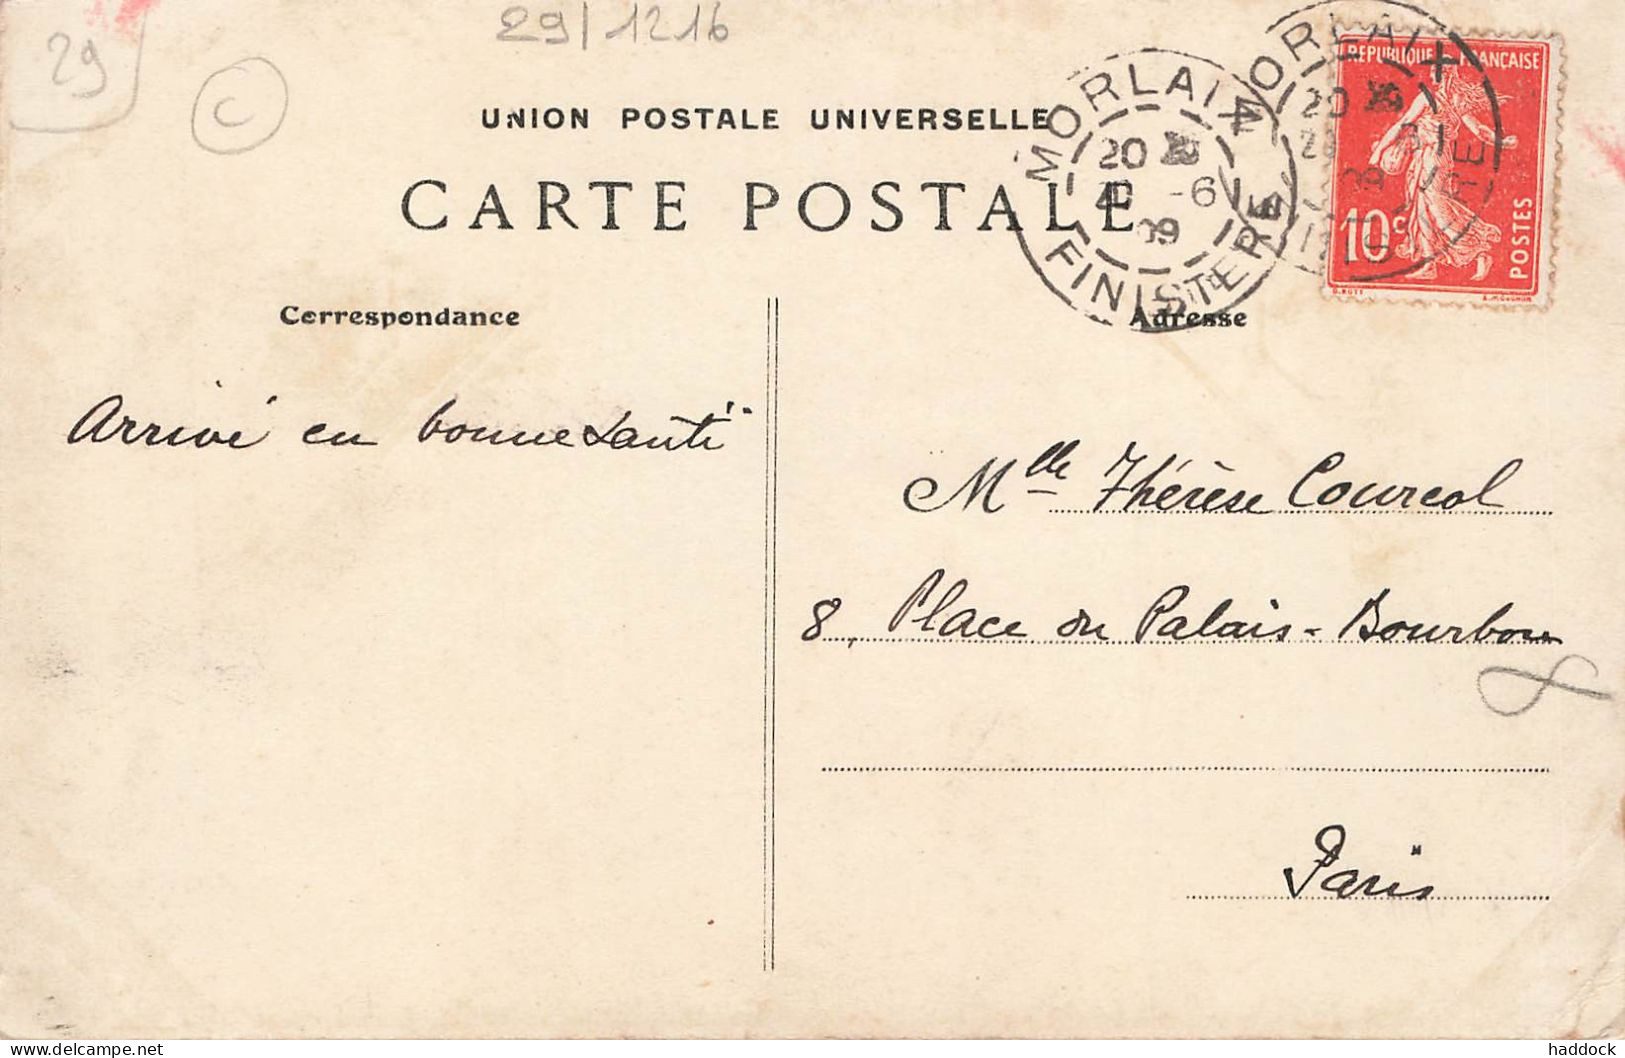 29
29/1216
C
UNION POSTALE UNIVERSELLE
CARTE POSTALE
MORLAIX
20
-6
09
FINISTERE
MORLAIX
20
09
REPUBLIQUE FRANÇAISE
10c
POSTES
Correspondance
Adresse
Arrivé en bonne santé
Mlle Thérèse Courcol
8, Place du Palais-Bourbon
Paris
haddock